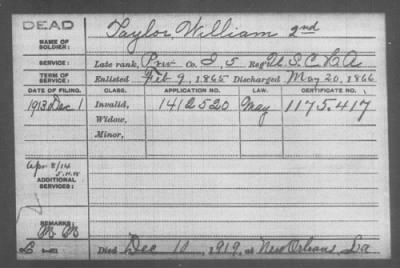 DEAD
NAME OF SOLDIER: Taylor, William 2nd
SERVICE: Late rank, Priv Co. I, 5 Reg't U.S.C.H.A.
TERM OF SERVICE: Enlisted Feb 9, 1865 Discharged May 20, 1866
DATE OF FILING. CLASS. APPLICATION NO. LAW. CERTIFICATE NO.
1913 Dec 1 Invalid, 1412520 May 1175.417
Widow,
Minor,
Apr 8/14
ADDITIONAL SERVICES:
REMARKS:
Died Dec 10, 1919, at New Orleans, La